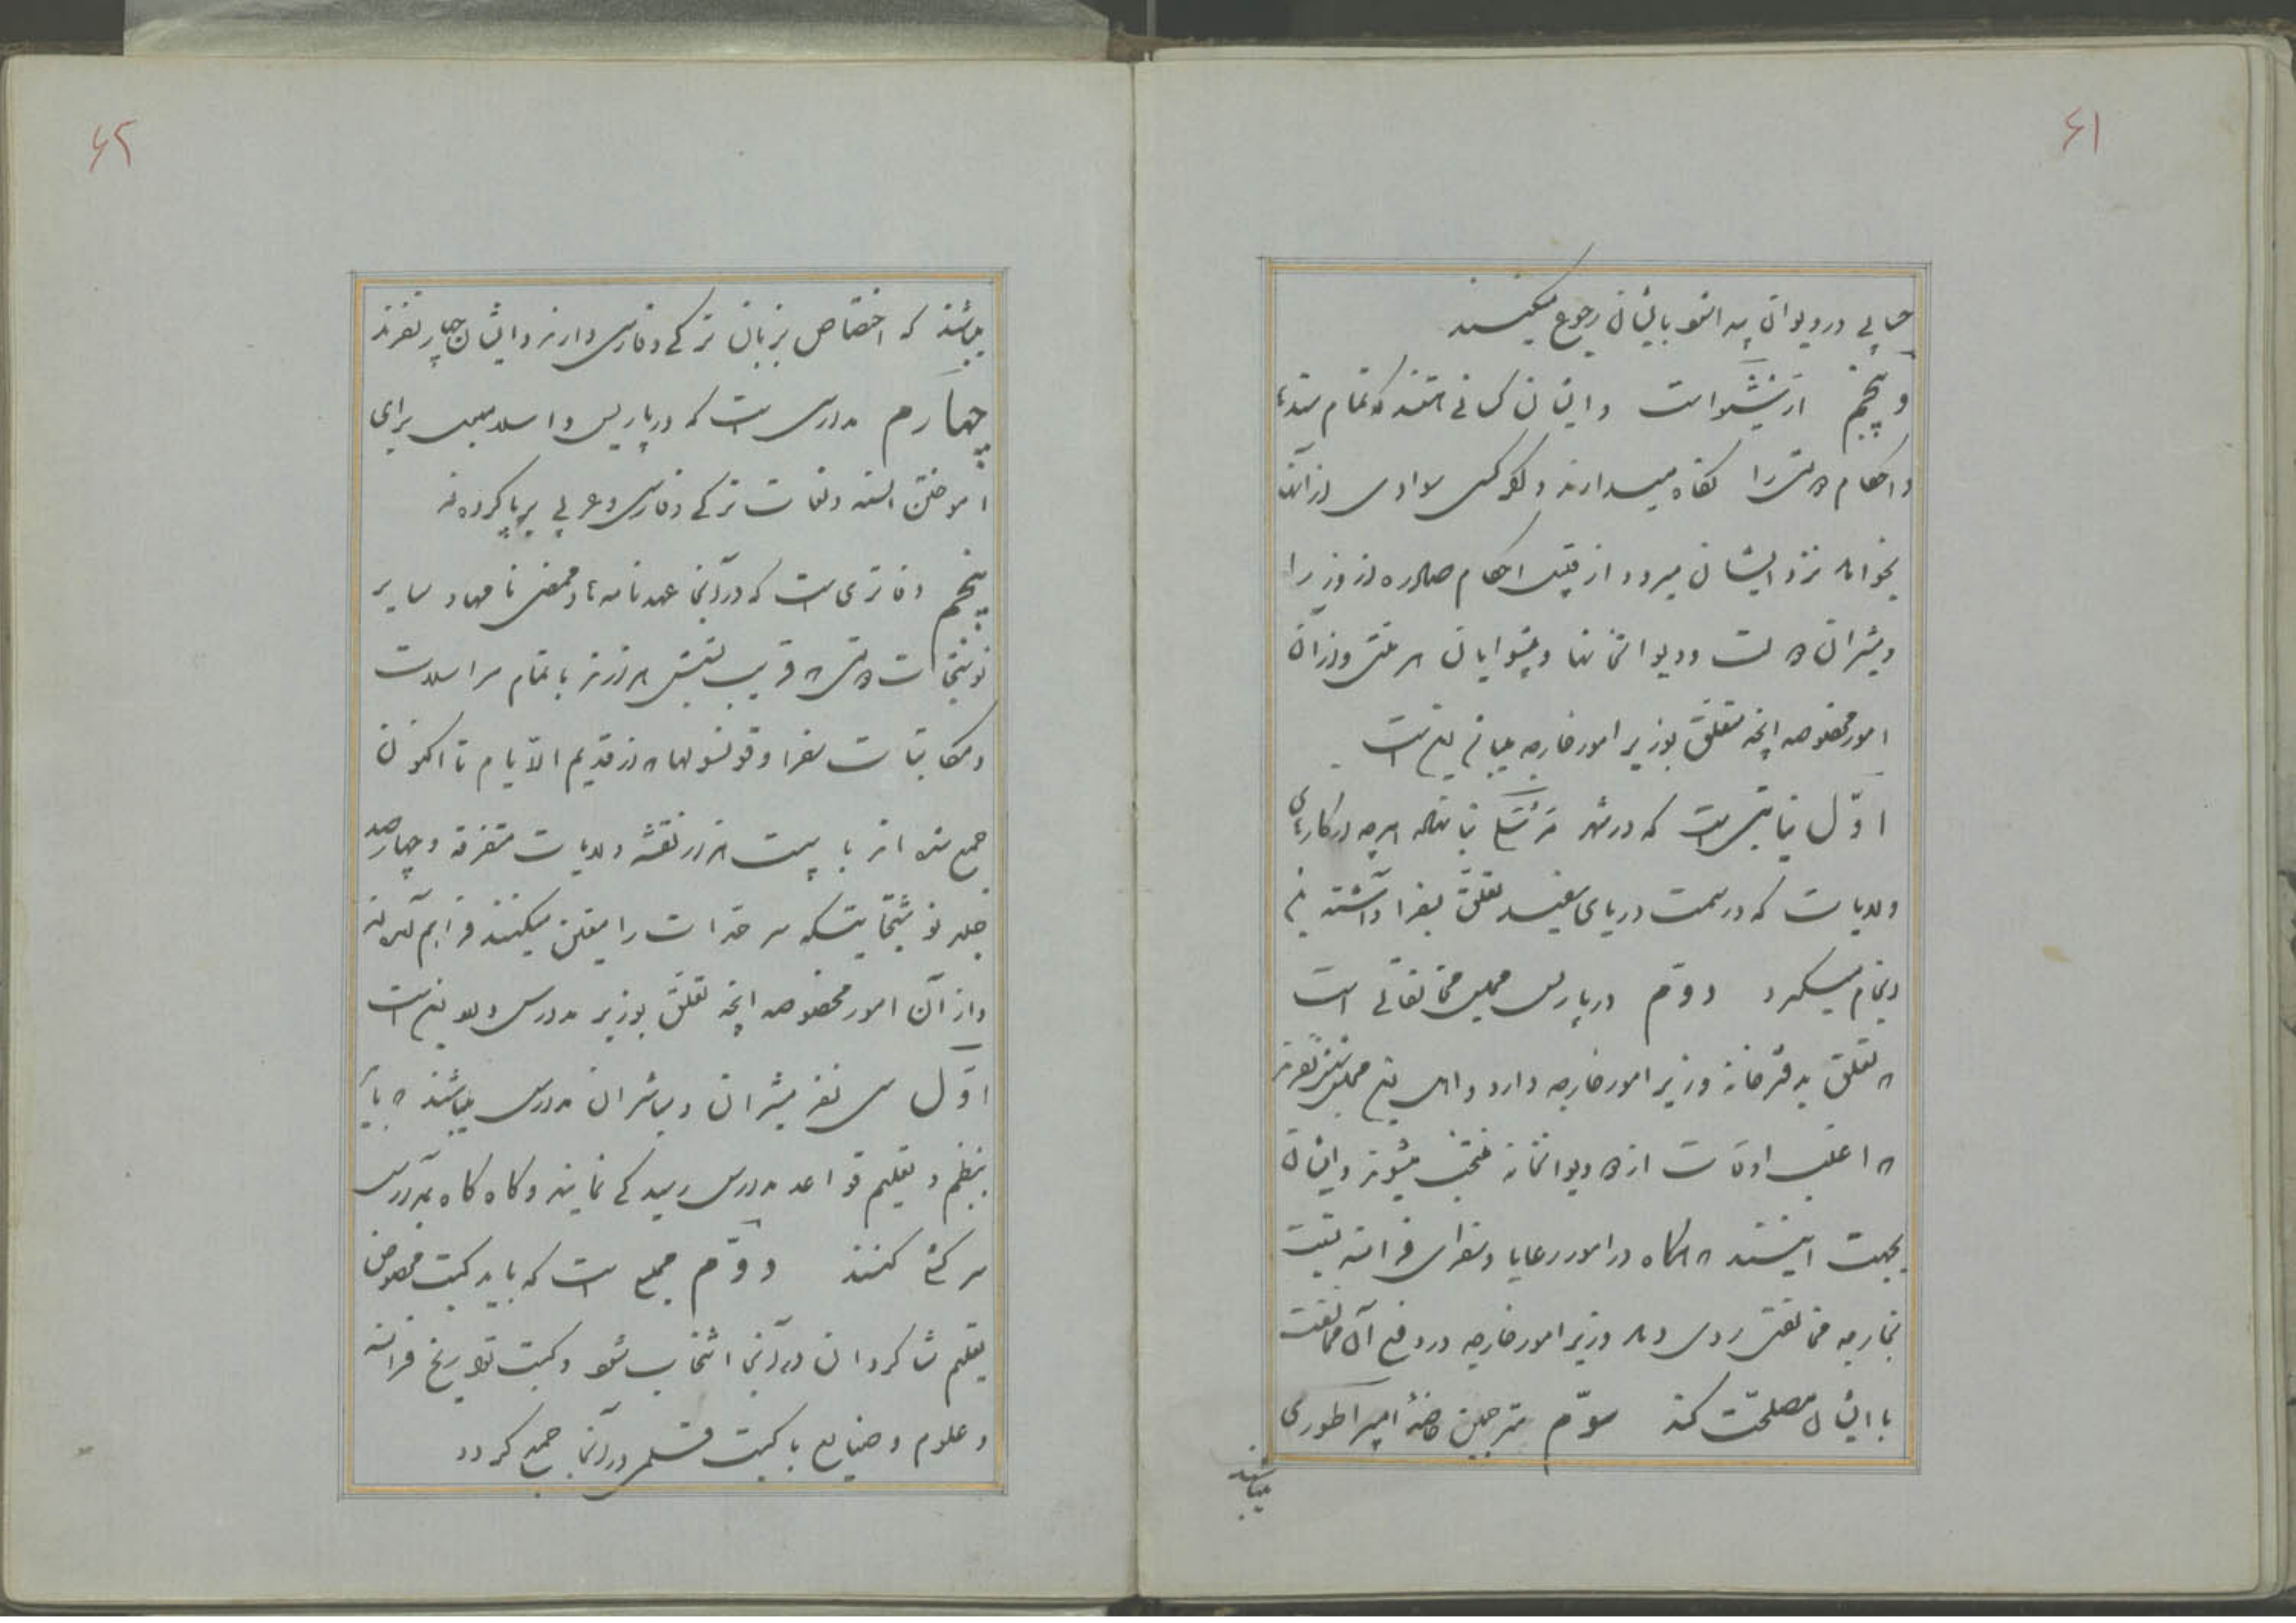 ۶۱
حسابی در دیوان پیدا شود بایشان رجوع میکنند
و پنجم از نیشوا است و ایشان کسانی هستند که تمام سندها
و احکام دولتی را نگاه میدارند و اگر کسی سوادی از آنها
بخواهد نزد ایشان میرود از قبیل احکام صادره از وزرا
و مشیران دولت و دیوانخانها و پیشوایان هر ملتی و از آن
امور مخصوصه آنچه متعلق بوزیر امور خارجه میباشد پنج است
اوّل نیابتی است که در شهر هرچه در کارهای
ولایات که در سمت دریای سفید تعلق بسفرا داشته
و تمام میگیرد دوّم در پاریس مجلس مخالفاتی است
که تعلق بدفترخانه وزیر امور خارجه دارد و اهل این مجلس شش نفرند
که اغلب اوقات از دیوانخانه منتخب میشوند و ایشان
بجهت اینستند که هرگاه در امور رعایا و سفرای فرانسه نسبت
بخارجه مخالفتی روی دهد وزیر امور خارجه در دفع آن مخالفت
با ایشان مصلحت کند سوّم مترجمین خاصهٔ امپراطوری
میباشند
۶۲
میباشند که اختصاص بزبان ترکی و فارسی دارند و ایشان چهار نفرند
چهارم مدارسی است که در پاریس و اسلامبول برای
آموختن السنه و لغات ترکی و فارسی و عربی برپا کرده‌اند
پنجم دفاتری است که در آنجا عهدنامه‌ها و ممضی نامها و سایر
نوشتجات دولتی که قریب بشش هزارند با تمام مراسلات
و مکاتبات سفرا و قونسولها که از قدیم الایام تا اکنون
جمع شده‌اند با بیست هزار نقشه ولایات متفرقه و چهارصد
جلد نوشتجاتیکه سرحدات را معین میکنند فراهم آمده‌اند
و از آن امور مخصوصه آنچه تعلق بوزیر مدارس دارد پنج است
اوّل سی نفر مشیران و مباشران مدارس میباشند که باید
بنظم و تعلیم قواعد مدارس رسیدگی نمایند و گاه گاه بمدارس
سرکشی کنند دوّم مجمعی است که باید کتب مخصوص
تعلیم شاگردان در آنجا انتخاب شود و کتب تواریخ فرانسه
و علوم و صنایع با کتب قلمی در آنجا جمع گردد